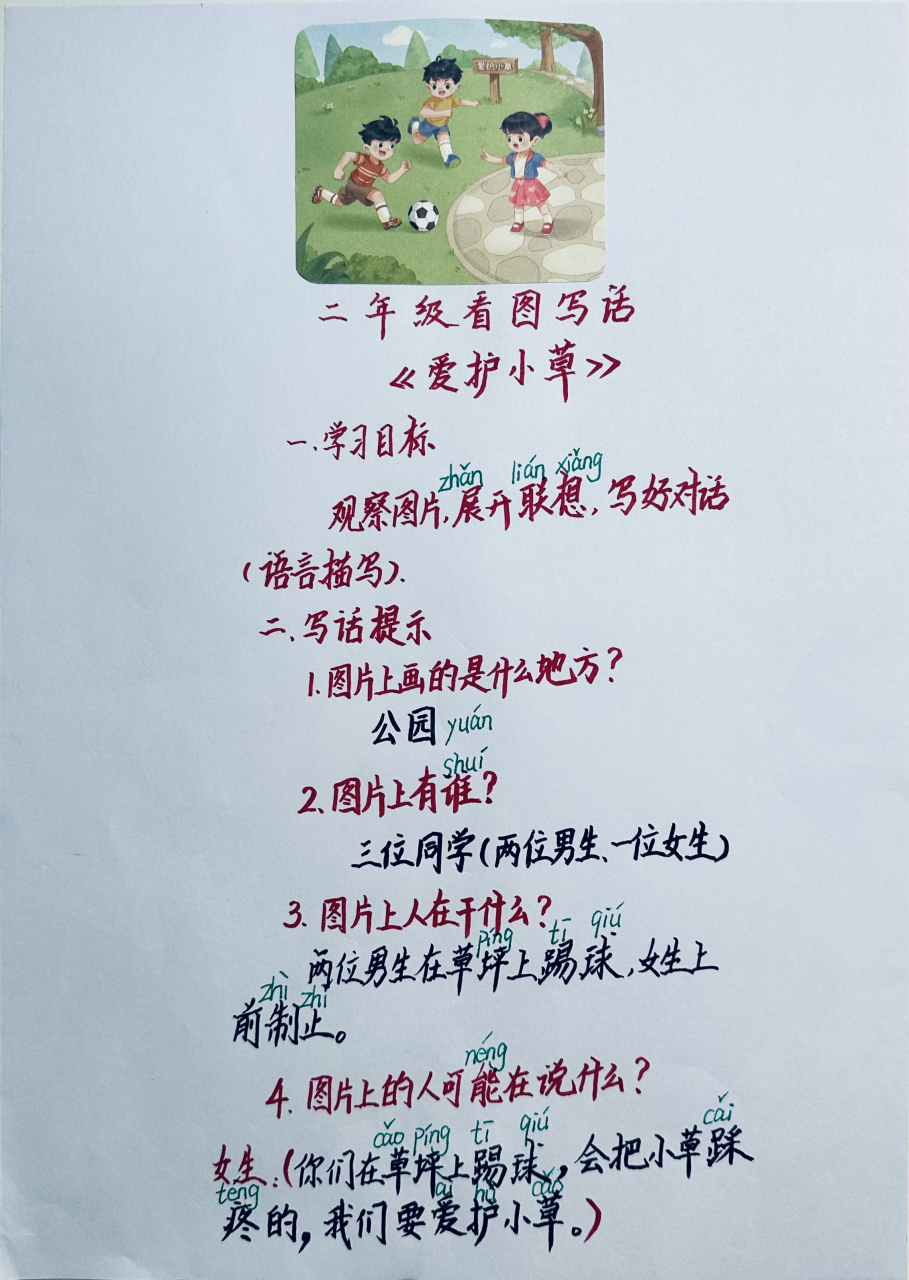 爱护小草
二年级看图写话
《爱护小草》
一、学习目标
zhǎn lián xiǎng
观察图片,展开联想,写好对话
(语言描写).
二、写话提示
1.图片上画的是什么地方?
公园 yuán
shuí
2.图片上有谁?
三位同学(两位男生、一位女生)
3.图片上人在干什么?
píng tī qiú
两位男生在草坪上踢球,女生上
zhì zhǐ
前制止。
néng
4.图片上的人可能在说什么?
cǎo píng tī qiú cǎi
女生:(你们在草坪上踢球,会把小草踩
téng ài hù cǎo
疼的,我们要爱护小草。)